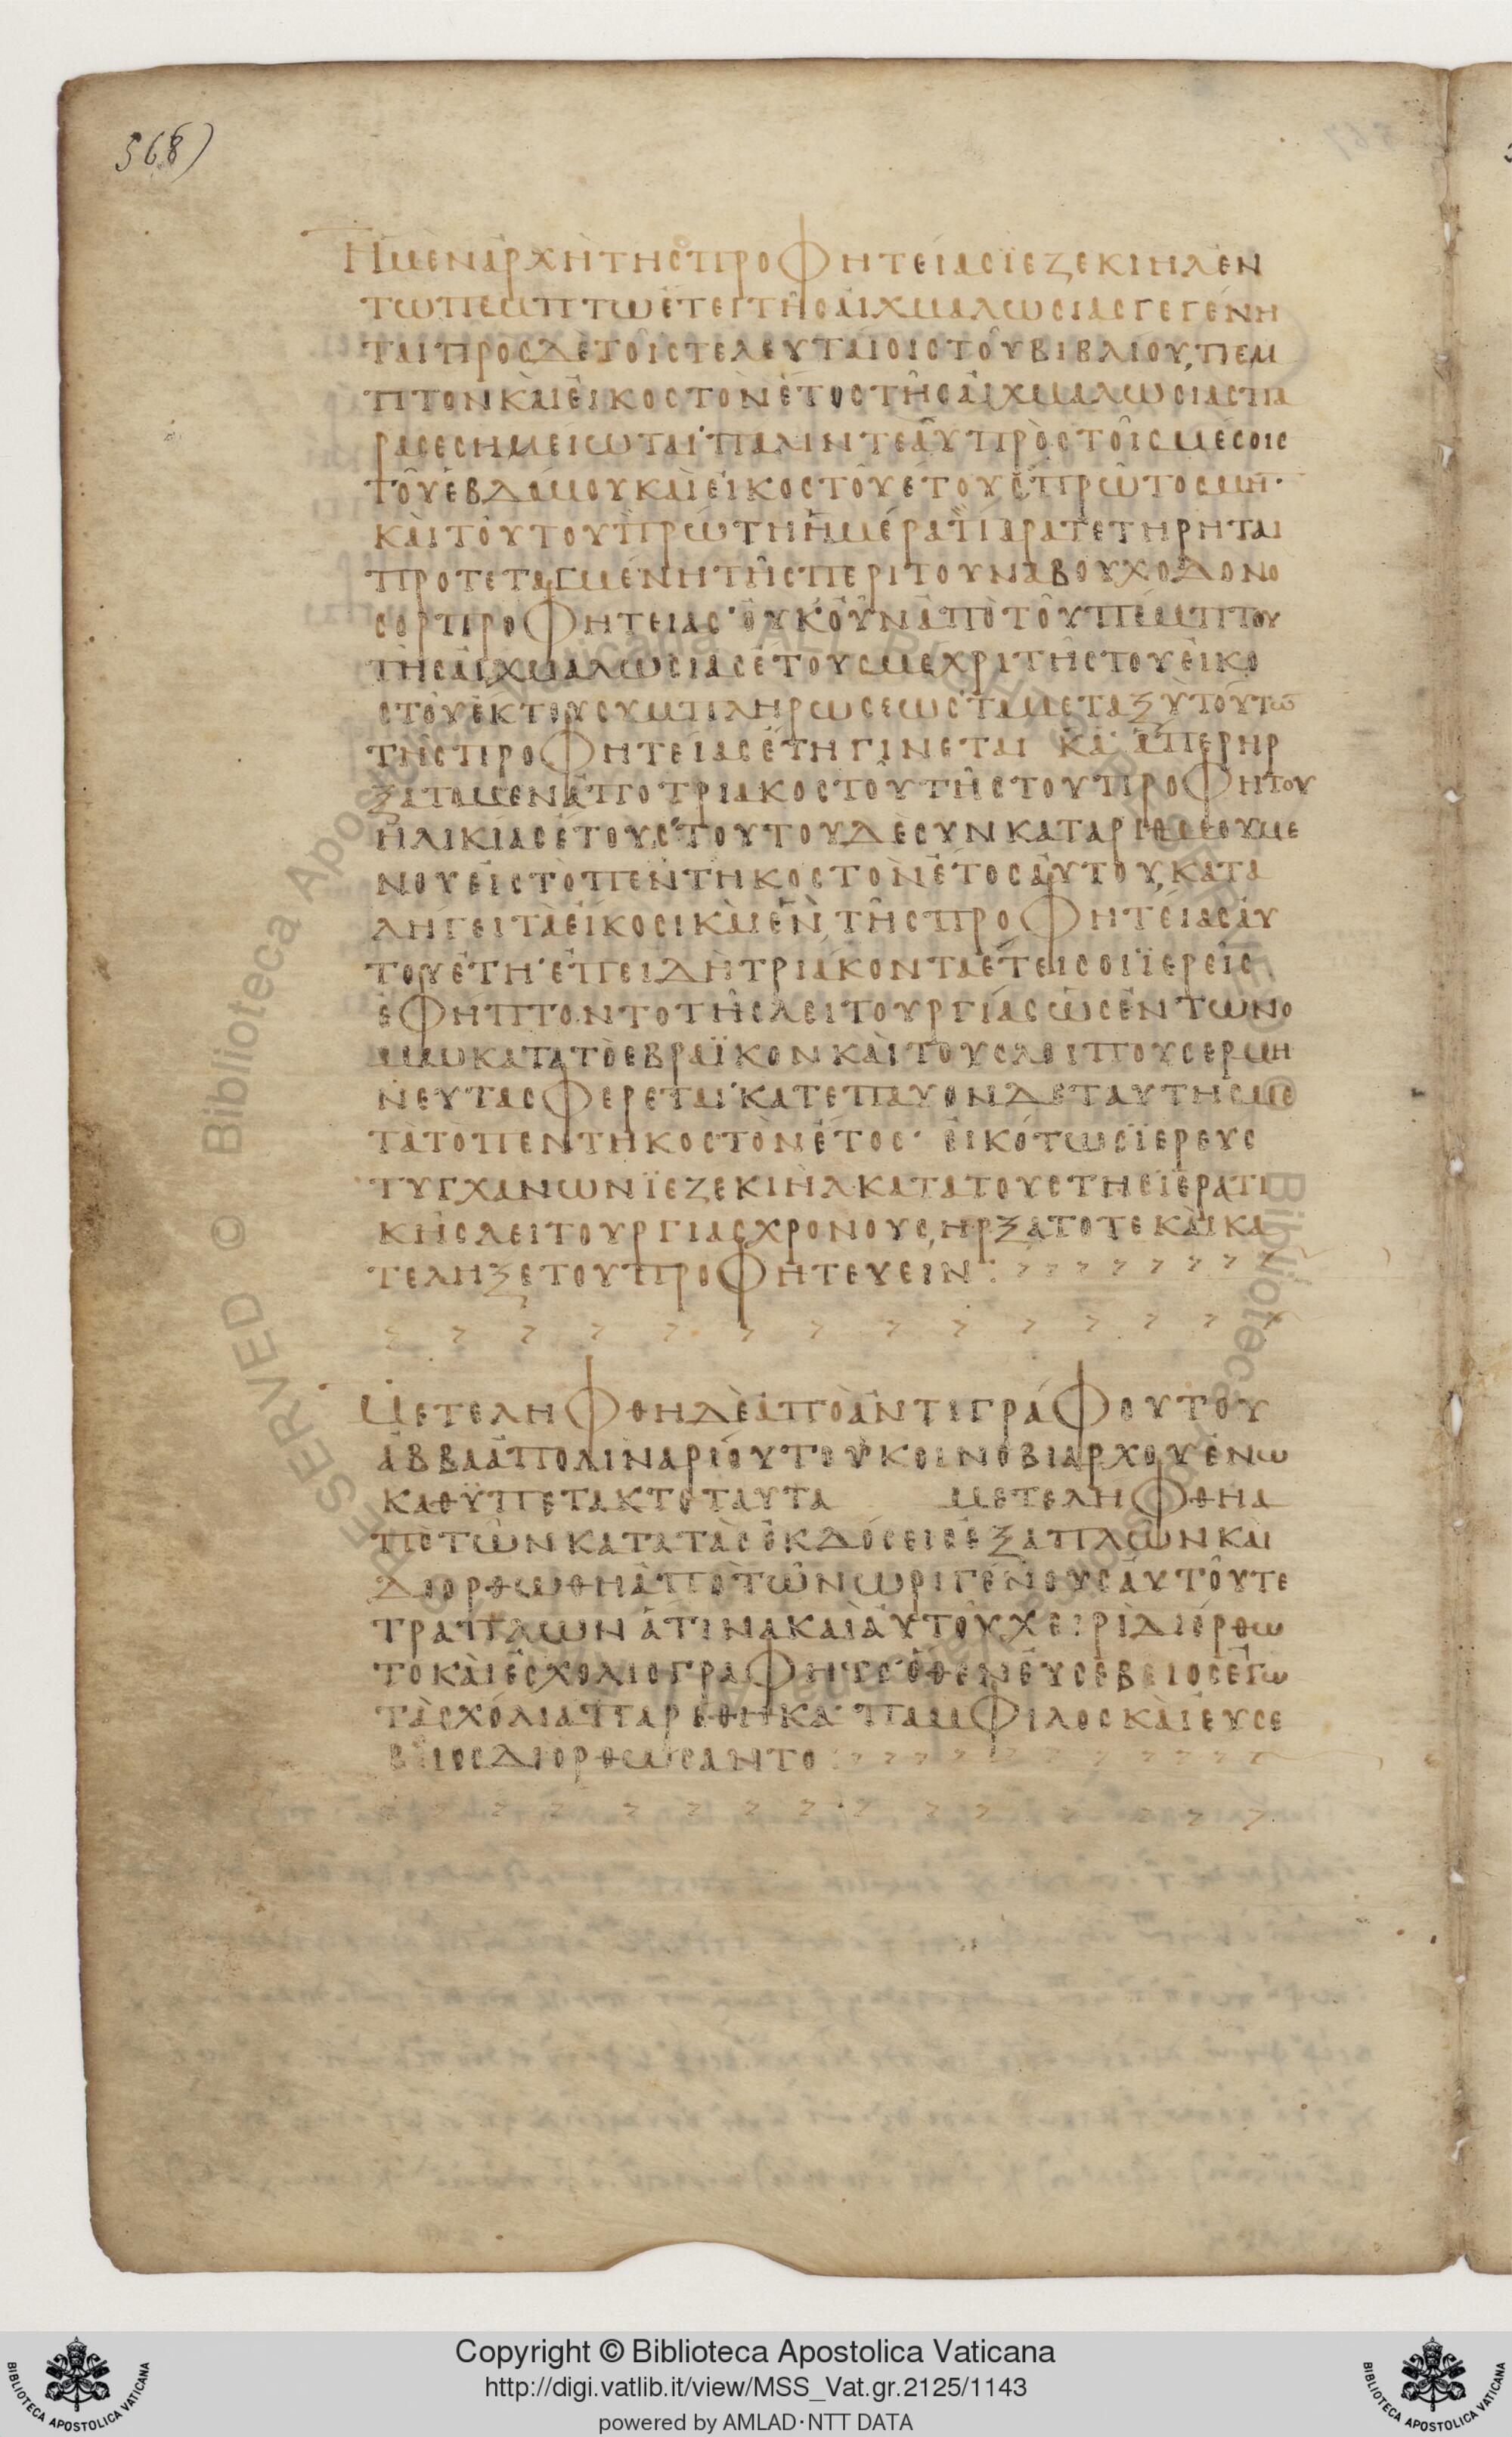 568)
Ἡ μὲν ἀρχὴ τῆς προφητείας ϊεζεκιὴλ ἐν
τῷ πεμπτω ἔτει τῆς αἰχμαλωσιας γεγένη
ται πρὸς δὲ τοῖς τελευταίοις τοῦ βιβλίου, πεμ
πτον καὶ εἰκοστὸν ἔτος τῆς αἰχμαλωσιας πα
ρασεσημείωται· πάλιν τε αὖ πρὸς τοῖς μέσοις
τοῦ ἑβδόμου καὶ εἰκοστοῦ ἔτους πρῶτος μη·
καὶ τούτου πρώτη ἡμέρα παρατετηρηται
προτεταγμένη τῆς περι του ναβουχοδονο
σορ προφητειας· οὐκοῦν ἀπὸ τοῦ πέμπτου
τῆς αἰχμαλωσιας ἔτους μεχρι τῆς του εἰκο
στοῦ ἑκτου συμπληρωσεως τα μεταξὺ τούτω
τῆς προφητείας ἔτη γίνεται κα· ἅπερ ηρ
ξατο μεν ἀπο τριακοστοῦ τῆς του προφητου
ἡλικίας ἔτους· τουτου δὲ συνκαταριθμουμε
νου εἰς τὸ πεντηκοστὸν ἔτος αὐτου, κατα
λήγει τὰ εἴκοσι καὶ ἓν, τῆς προφητείας αὐ
του ἔτη· ἐπειδὴ τριάκονταέτεις οἱ ϊερεῖς
ἐφηπτοντο τῆς λειτουργίας ὡς ἐν τω νο
μω κατα τὸ εβραϊκον καὶ τους λοιπους ερμη
νευτας φερεται· κατεπαυον δε ταυτης με
τὰ τὸ πεντηκοστὸν ἔτος· εἰκότως ϊερευς
τυγχανων ϊεζεκιὴλ κατα τους τῆς ϊερατι
κῆς λειτουργιας χρονους, ηρξατο τε καὶ κα
τεληξε του προφητευειν :
Μετελήφθη δὲ ἀπὸ ἀντιγράφου του
ἀββα ἀπολιναρίου του κοινοβιαρχου ἐν ω
καθϋπετακτο ταυτα μετελήφθη α
πὸ τῶν κατα τὰς ἐκδόσεις ἑξαπλῶν καὶ
διορθωθη ἀπὸ τῶν ωριγένους αὐτοῦ τε
τραπλων ἅτινα καὶ αὐτοῦ χειρὶ διόρθω
το καὶ ἐσχολιογραφητο· ὅθεν εὐσέβειος ἐγω
τὰ σχόλια παρέθηκα· παμφιλος καὶ ἐυσε
βειος διορθωσαντο :
Copyright © Biblioteca Apostolica Vaticana
http://digi.vatlib.it/view/MSS_Vat.gr.2125/1143
powered by AMLAD·NTT DATA